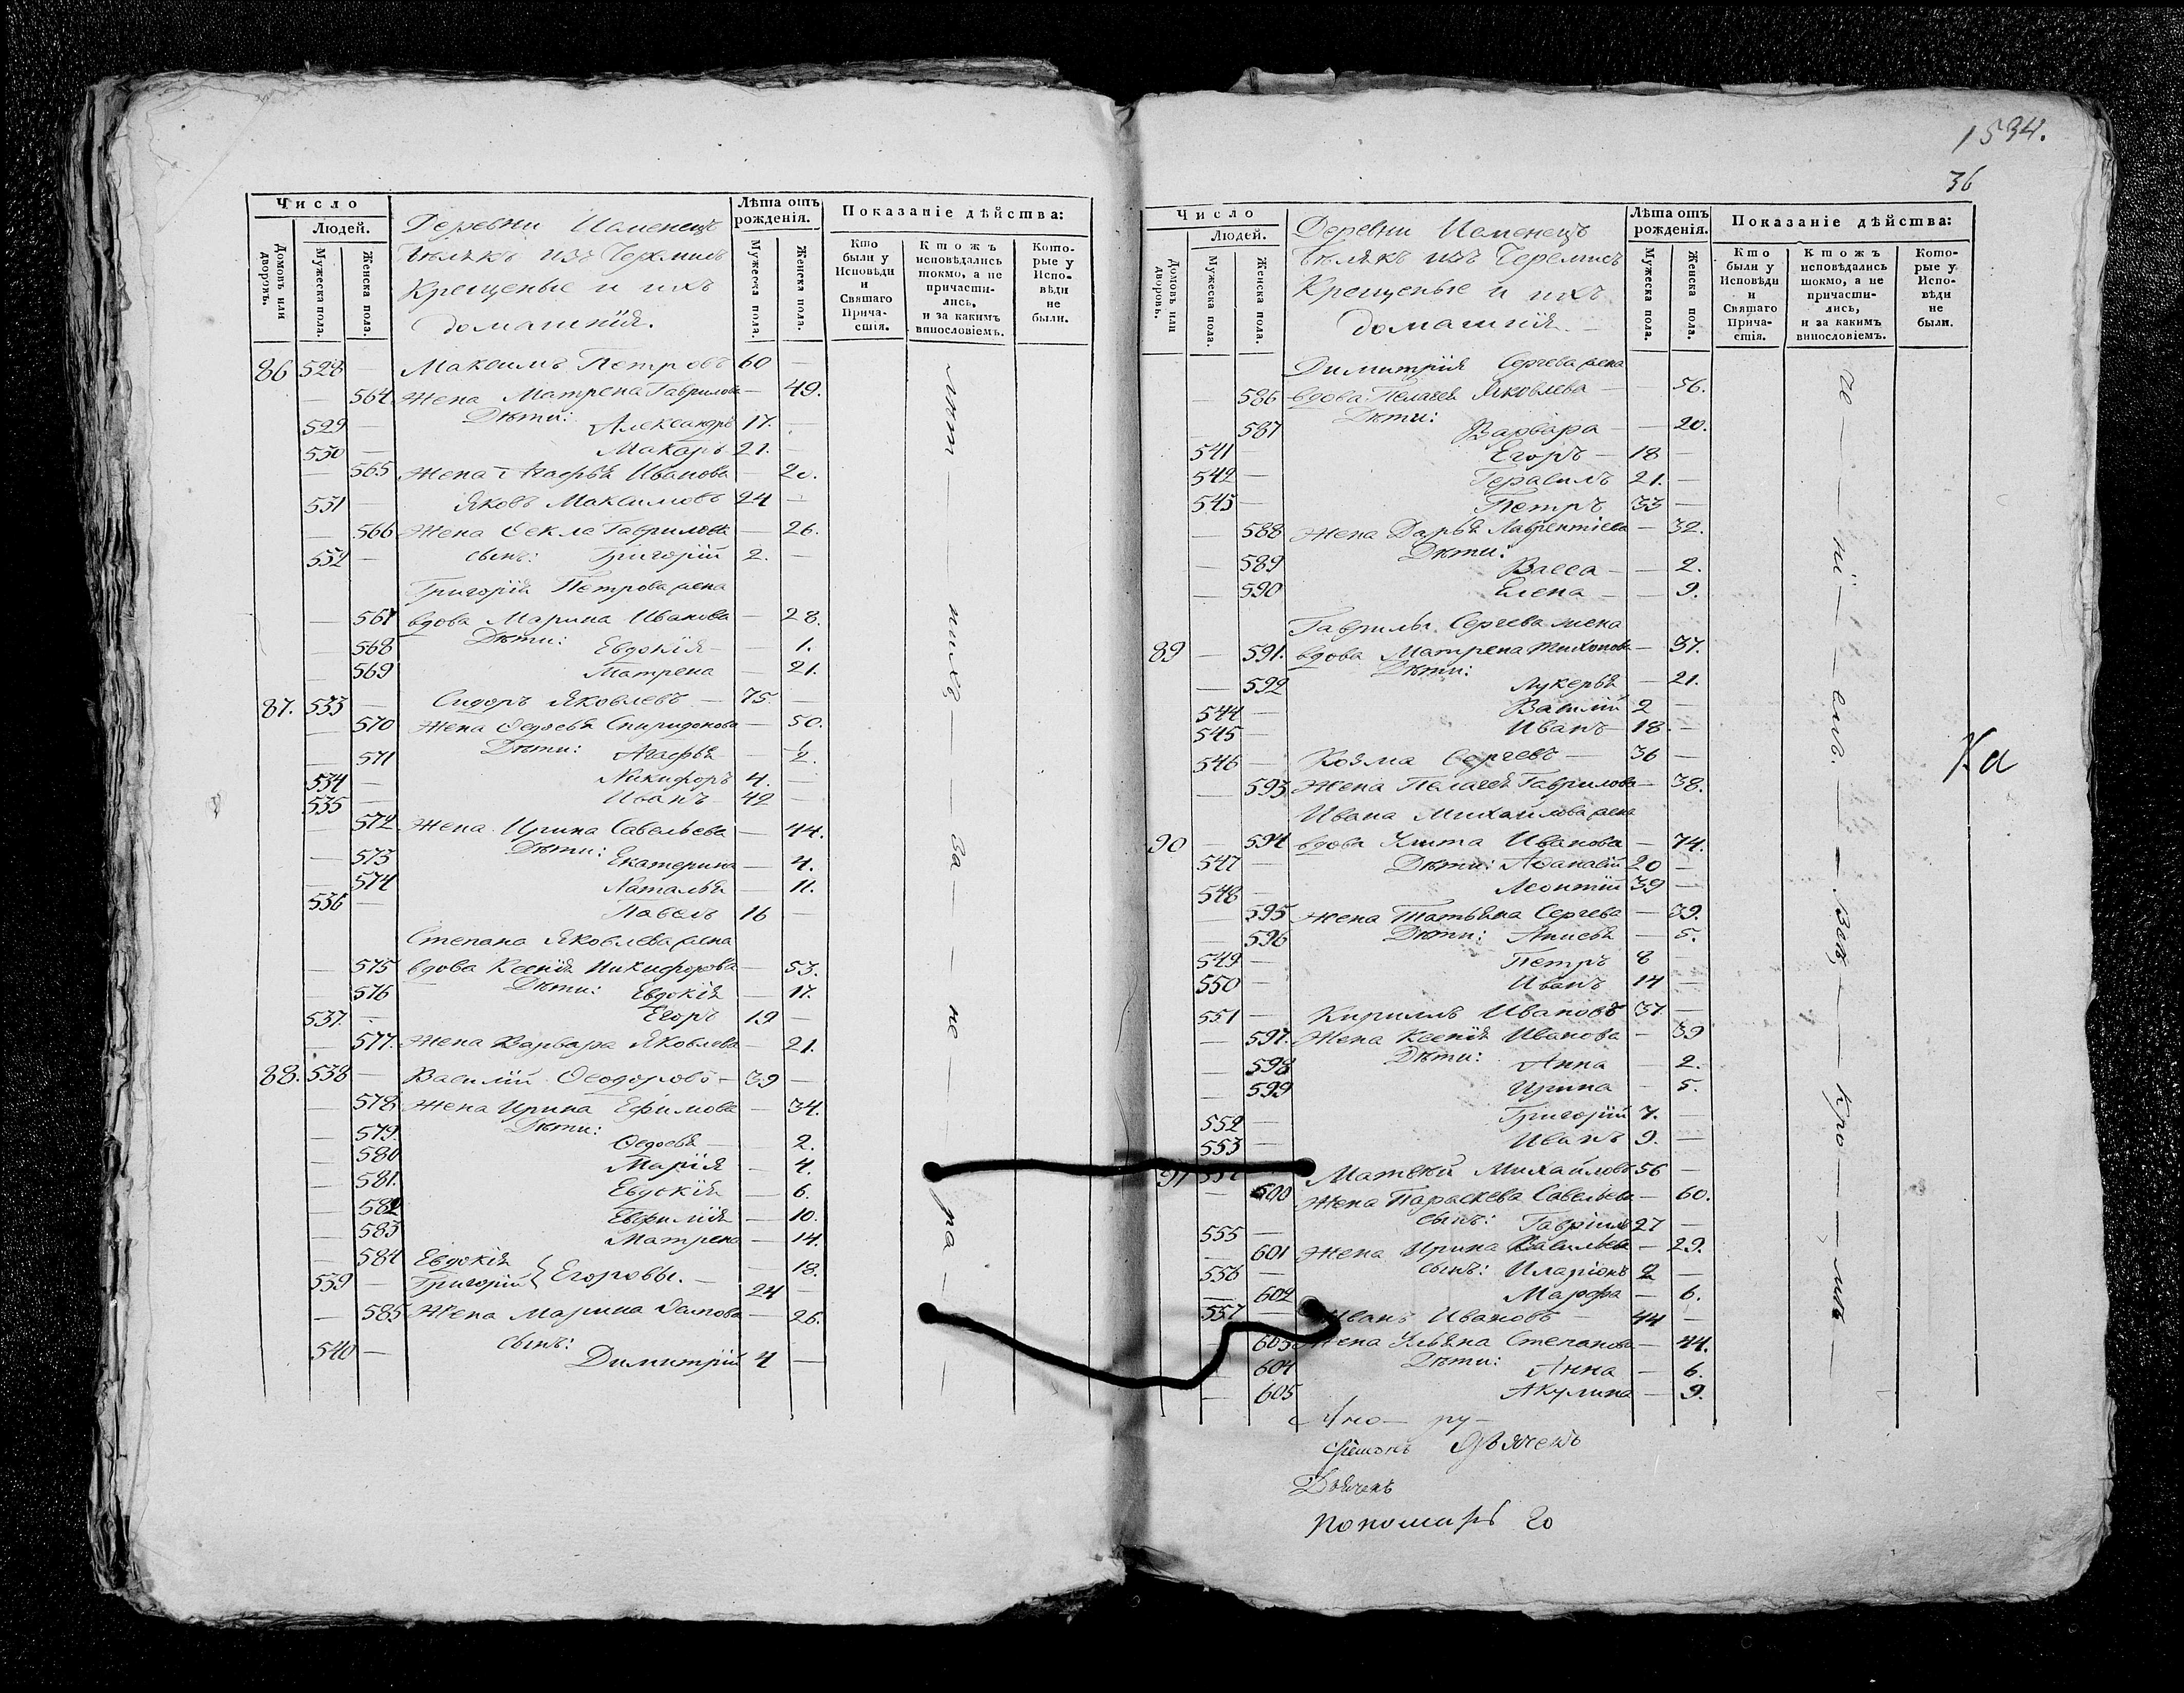 Число
Людей.
Домовъ или дворовъ.
Мужеска пола.
Женска пола.
Деревни Изменецъ
изъ Черемисъ
Крещеные и ихъ
домашнія.
Лѣта отъ рожденія.
Мужеска пола.
Женска пола.
Показаніе дѣйства:
Кто были у Исповѣди и Святаго Причастія.
Ктожъ исповѣдались токмо, а не причастились, и за какимъ винословіемъ.
Которые у Исповѣди не были.
86 528 — Максимъ Петровъ 60 —
— 564 Жена Матрена Гаврилова — 49.
Дѣти:
529 — Александръ 17.
530 — Макаръ 21. —
— 565 Жена Агафья Иванова — 20.
531 — Яковъ Максимовъ 24 —
— 566 Жена Ѳекла Гаврилова — 26.
532 — сынъ: Григорій 2. —
Григорія Петрова жена
— 567 вдова Марина Иванова — 28.
Дѣти:
— 568 Евдокія — 1.
— 569 Матрена — 21.
87. 533 — Сидоръ Яковлевъ — 75 —
— 570 Жена Ѳедосья Спиридонова — 50.
Дѣти:
— 571 Агафья —
534 — Никифоръ 4. —
535 — Иванъ 42 —
— 572 Жена Ирина Савельева — 44.
Дѣти:
— 573 Екатерина — 4.
— 574 Наталья — 11.
536 — Павелъ 16 —
Степана Яковлева жена
— 575 вдова Ксенія Никифорова — 53.
Дѣти:
— 576 Евдокія — 17.
537. — Егоръ 19 —
— 577. Жена Варвара Яковлева — 21.
88. 538 — Василій Ѳеодоровъ — 39 —
— 578 Жена Ирина Ефимова — 34.
Дѣти:
— 579. Ѳедосья — 2.
— 580 Марія — 4.
— 581. Евдокія — 6.
— 582 Евфимія — 10.
— 583 Матрена — 14.
— 584 Евдокія — 18.
539 — Григорій } Егоровы. — 24 —
— 585 Жена Марина — 26.
сынъ:
540 — Димитрій 4 —
нихъ — за — не — ра —
1534.
36
Число
Людей.
Домовъ или дворовъ.
Мужеска пола.
Женска пола.
Деревни Изменецъ
изъ Черемисъ
Крещеные и ихъ
домашнія. —
Лѣта отъ рожденія.
Мужеска пола.
Женска пола.
Показаніе дѣйства:
Кто были у Исповѣди и Святаго Причастія.
Ктожъ исповѣдались токмо, а не причастились, и за какимъ винословіемъ.
Которые у Исповѣди не были.
Димитрія Сергева жена
— 586 вдова Пелагея Яковлева — 56.
Дѣти:
587 Варвара — 20.
541 — Егоръ — 18 —
542 — Герасимъ 21. —
543 — Петръ 33 —
— 588 Жена Дарья Лаврентіева — 32.
Дѣти:
— 589 Васса — 2.
— 590 Елена — 9.
Гаврилы Сергева жена
89 — 591. вдова Матрена Тихонова — 37.
Дѣти:
— 592 Лукерья — 21.
544 — Василій 2 —
545 — Иванъ — 18. —
546 — Козма Сергевъ — 36 —
— 593 Жена Пелагея Гаврилова — 38.
Ивана Михайлова жена
90 — 594 вдова Улита Иванова — 74.
547 — Дѣти: Аѳанасій 20 —
548 — Леонтій 39 —
— 595 Жена Татьяна Сергева — 39.
— 596 Дѣти: Анисья — 5.
549 — Петръ 8 —
550 — Иванъ 14 —
551 — Кириллъ Ивановъ 37. —
— 597. Жена Ксенія Иванова — 39
Дѣти:
— 598 Анна — 2.
— 599 Ирина — 5.
552 — Григорій 7. —
553 — Иванъ 9. —
91 Матвѣй Михайловъ 56 —
— 600 Жена Параскева Савельева — 60.
сынъ: Гавріилъ 27 —
555 —
— 601 Жена Ирина Васильева — 29.
556 — сынъ: Иларіонъ 2 —
— 602 Марфа — 6.
557 — Иванъ Ивановъ — 44 —
603 Жена Ульяна Степанова — 44.
Дѣти:
604 Анна — 6.
— 605 Акулина — 9.
кро —
Ка
ру —
Дьячекъ
пономарь